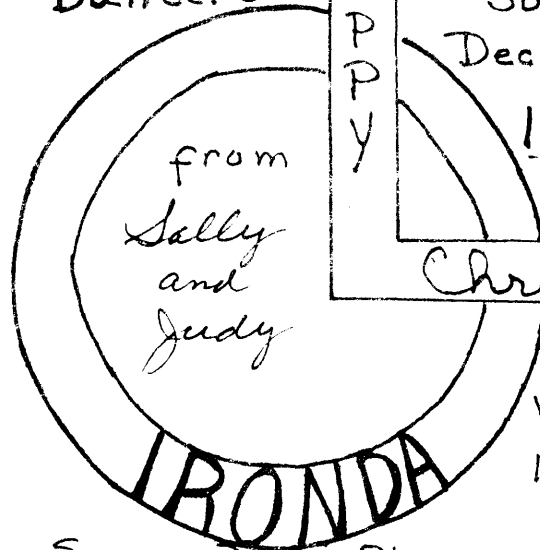 Dec
PPY
!
from
Sally
and
Judy
Chr
IRONDA